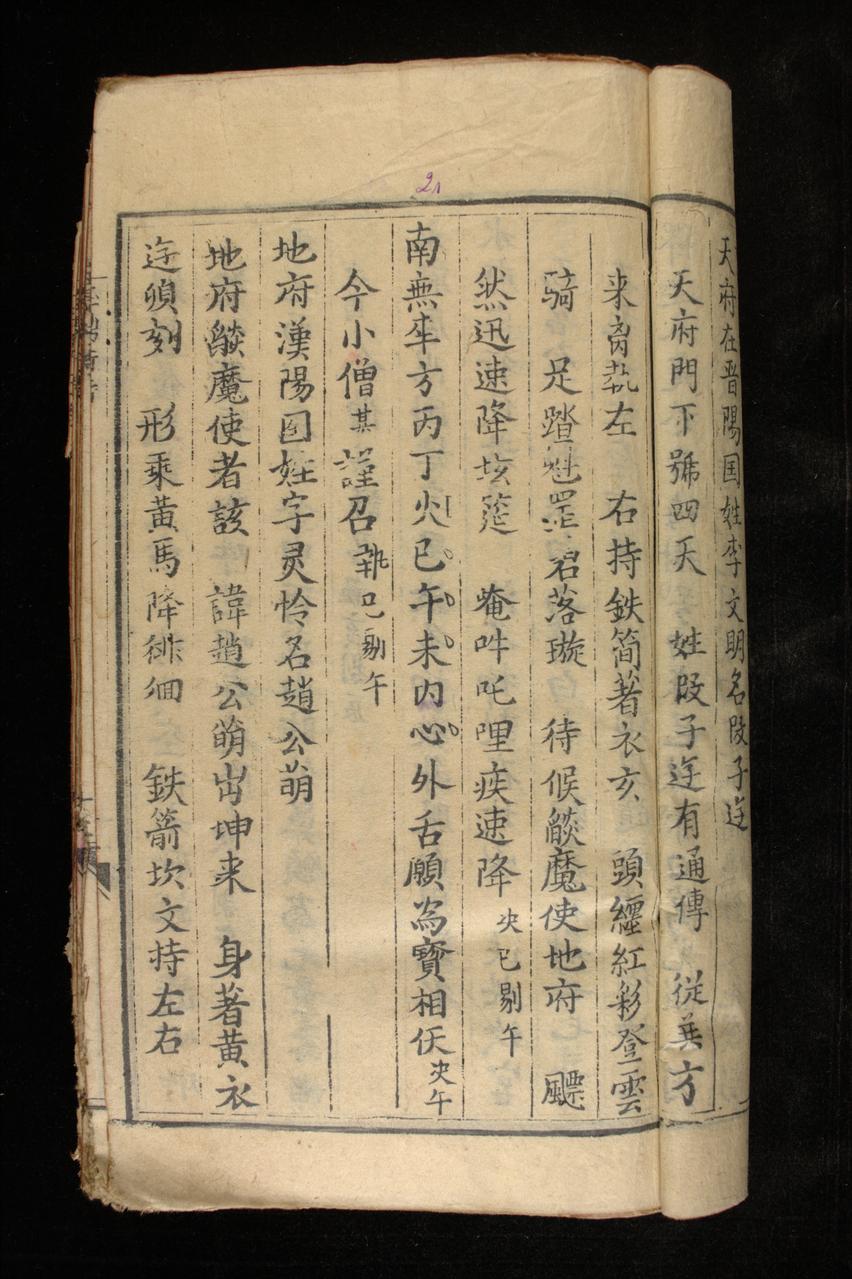 天府在晋陽国姓李文明名段子迻
天府門下號四天 姓段子迻有通傳 從巽方
来 左 右持鉄简著衣亥 頭纒紅彩登雲
騎 足踏魁罡 君落璇 待候燄魔使地府 飃
然迅速降垓筵 唵吽吒哩疾速降 夬巳剔午
南無 方丙丁火巳午未内心外舌願為寶相仸夬午
今小僧某謹召 巳剔午
地府漢陽国姓字灵怜名趙公萌
地府燄魔使者該 諱趙公萌出坤来 身著黄衣
迻頃刻 形乘黄馬降徘徊 鉄箭坎文持左右
21